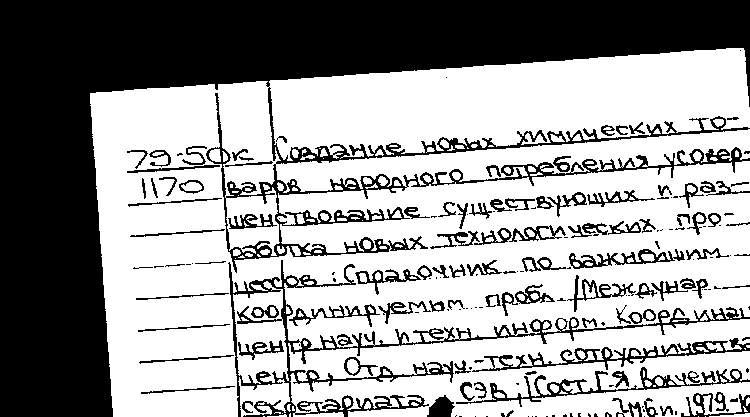 79-50к Создание новых химических то-
1170 варов народного потребления, усовер-
шенствование существующих и раз-
работка новых технологических про-
цессов : Справочник по важнейшим
координируемым пробл. / Междунар.
центр науч. и техн. информ. Координац
центр, Отд. науч.-техн. сотрудничества
секретариата СЭВ ; [Сост. Г.Я. Вовченко.
М.: Б.и., 1979.-